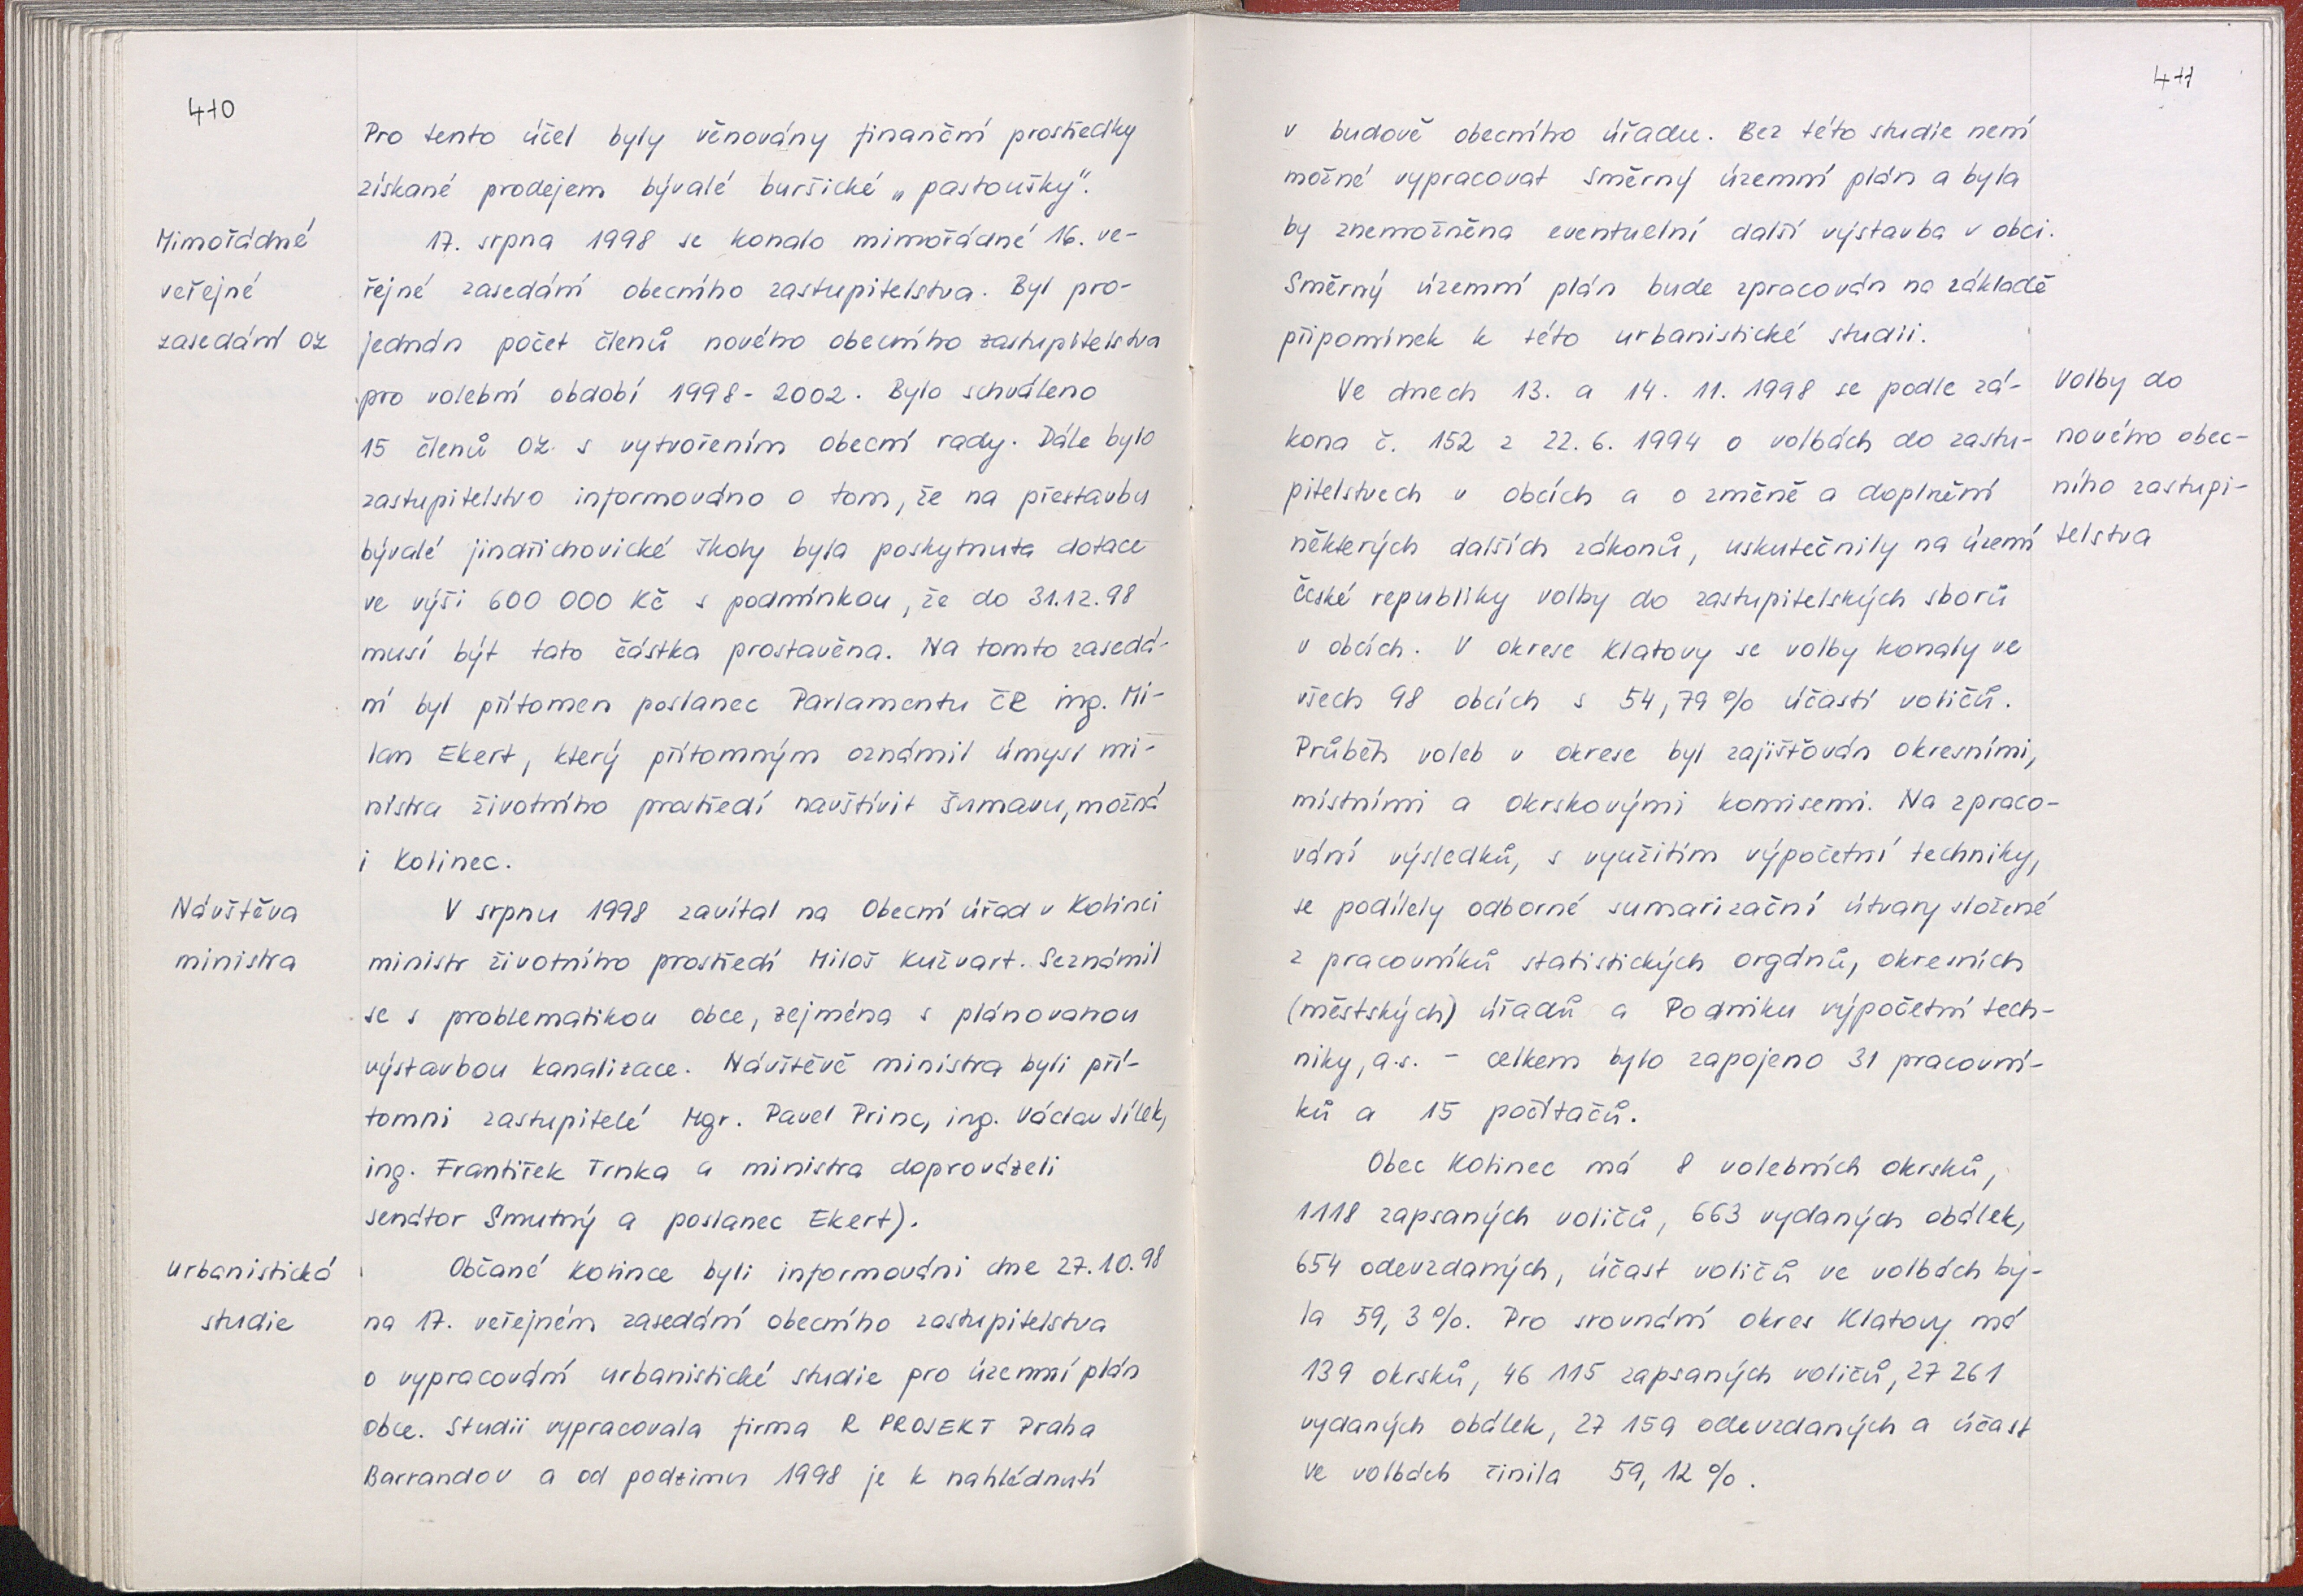 410
Pro tento účel byly věnovány finanční prostředky
získané prodejem bývalé buršické „pastoušky".
Mimořádné
veřejné
zasedání OZ
17. srpna 1998 se konalo mimořádné 16. ve-
řejné zasedání obecního zastupitelstva. Byl pro-
jednán počet členů nového obecního zastupitelstva
pro volební období 1998 - 2002. Bylo schváleno
15 členů OZ s vytvořením obecní rady. Dále bylo
zastupitelstvo informováno o tom, že na přestavbu
bývalé jindřichovické školy byla poskytnuta dotace
ve výši 600 000 Kč s podmínkou, že do 31.12.98
musí být tato částka prostavěna. Na tomto zasedá-
ní byl přítomen poslanec Parlamentu ČR ing. Mi-
lan Ekert, který přítomným oznámil úmysl mi-
nistra životního prostředí navštívit Šumavu, možná
i Kolinec.
Návštěva
ministra
V srpnu 1998 zavítal na Obecní úřad v Kolinci
ministr životního prostředí Miloš Kužvart. Seznámil
se s problematikou obce, zejména s plánovanou
výstavbou kanalizace. Návštěvě ministra byli pří-
tomni zastupitelé Mgr. Pavel Princ, ing. Václav Jílek,
ing. František Trnka a ministra doprovázeli
senátor Smutný a poslanec Ekert).
Urbanistická
studie
Občané Kolince byli informováni dne 27.10.98
na 17. veřejném zasedání obecního zastupitelstva
o vypracování urbanistické studie pro územní plán
obce. Studii vypracovala firma R PROJEKT Praha
Barrandov a od podzimu 1998 je k nahlédnutí
411
v budově obecního úřadu. Bez této studie není
možné vypracovat Směrný územní plán a byla
by znemožněna eventuelní další výstavba v obci.
Směrný územní plán bude zpracován na základě
připomínek k této urbanistické studii.
Volby do
nového obec-
ního zastupi-
telstva
Ve dnech 13. a 14. 11. 1998 se podle zá-
kona č. 152 z 22. 6. 1994 o volbách do zastu-
pitelstvech v obcích a o změně a doplnění
některých dalších zákonů, uskutečnily na území
České republiky volby do zastupitelských sborů
v obcích. V okrese Klatovy se volby konaly ve
všech 98 obcích s 54,79 % účastí voličů.
Průběh voleb v okrese byl zajišťován okresními,
místními a okrskovými komisemi. Na zpraco-
vání výsledků, s využitím výpočetní techniky,
se podílely odborné sumarizační útvary složené
z pracovníků statistických orgánů, okresních
(městských) úřadů a Podniku výpočetní tech-
niky, a.s. - celkem bylo zapojeno 31 pracovní-
ků a 15 počítačů.
Obec Kolinec má 8 volebních okrsků,
1118 zapsaných voličů, 663 vydaných obálek,
654 odevzdaných, účast voličů ve volbách by-
la 59,3 %. Pro srovnání okres Klatovy má
139 okrsků, 46 115 zapsaných voličů, 27 261
vydaných obálek, 27 159 odevzdaných a účast
ve volbách činila 59,12 %.